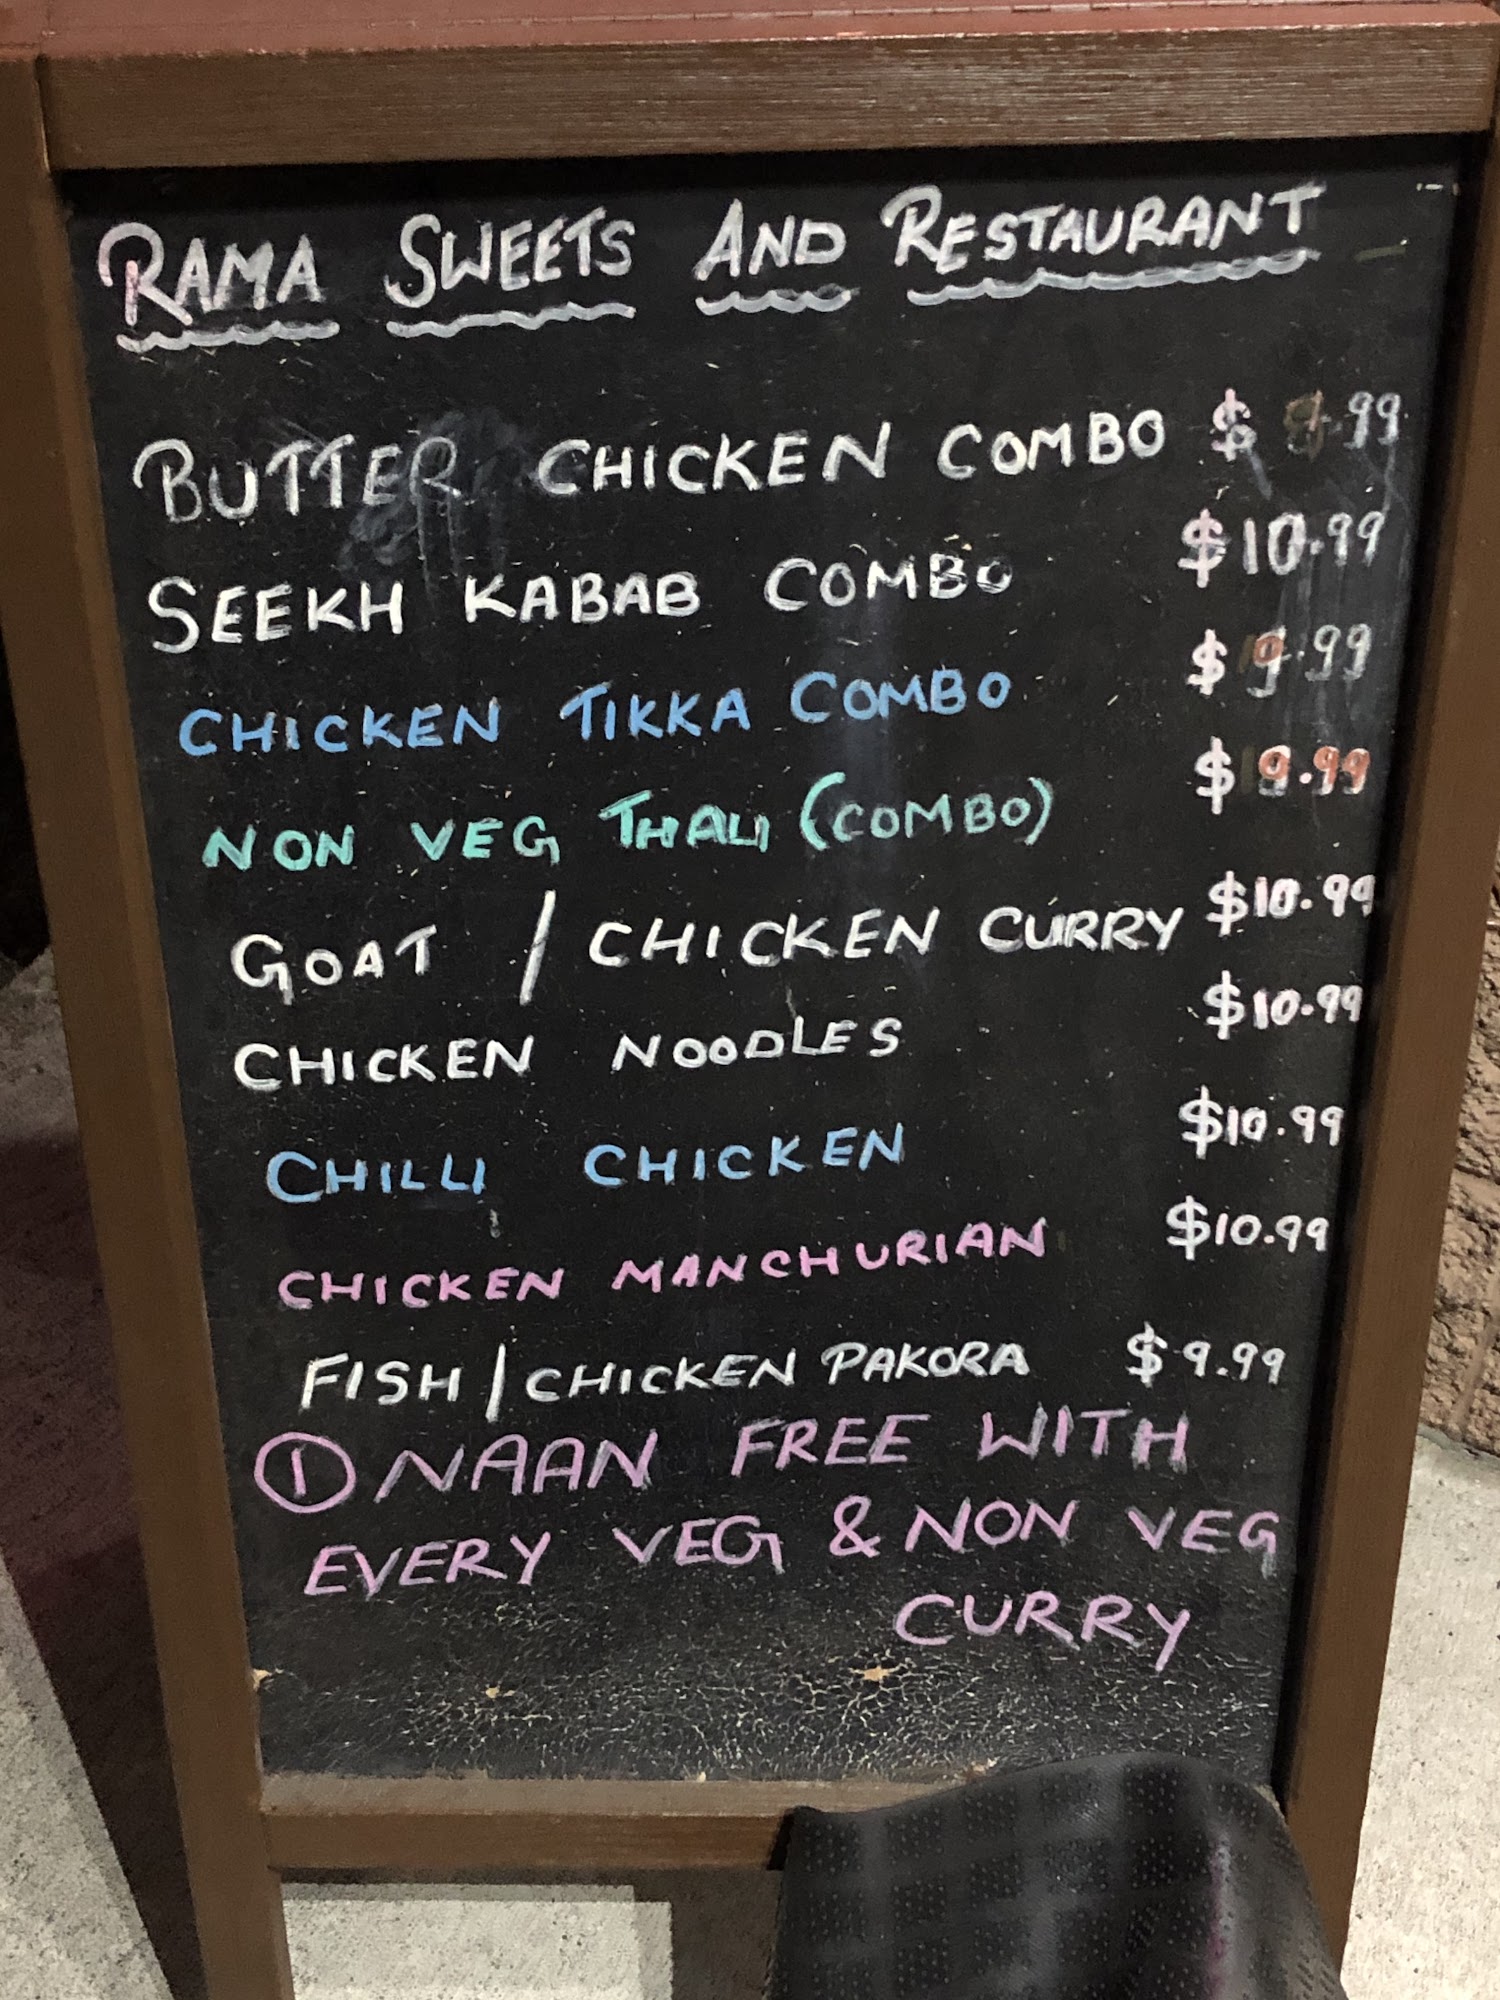 RAMA SWEETS AND RESTAURANT
BUTTER CHICKEN COMBO $ 9.99
SEEKH KABAB COMBO $10.99
CHICKEN TIKKA COMBO $ 9.99
NON VEG THALI (COMBO) $ 9.99
GOAT / CHICKEN CURRY $10.99
CHICKEN NOODLES $10.99
CHILLI CHICKEN $10.99
CHICKEN MANCHURIAN $10.99
FISH / CHICKEN PAKORA $ 9.99
1 NAAN FREE WITH
EVERY VEG & NON VEG
CURRY